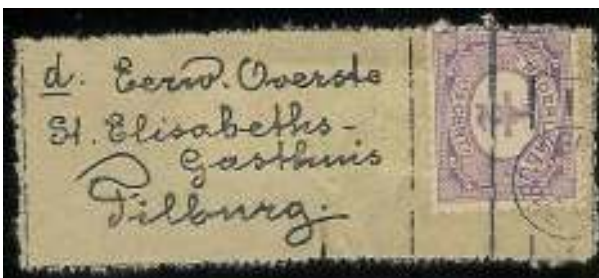 d. Eerw. Overste
St. Elisabeths-
Gasthuis
Tilburg.